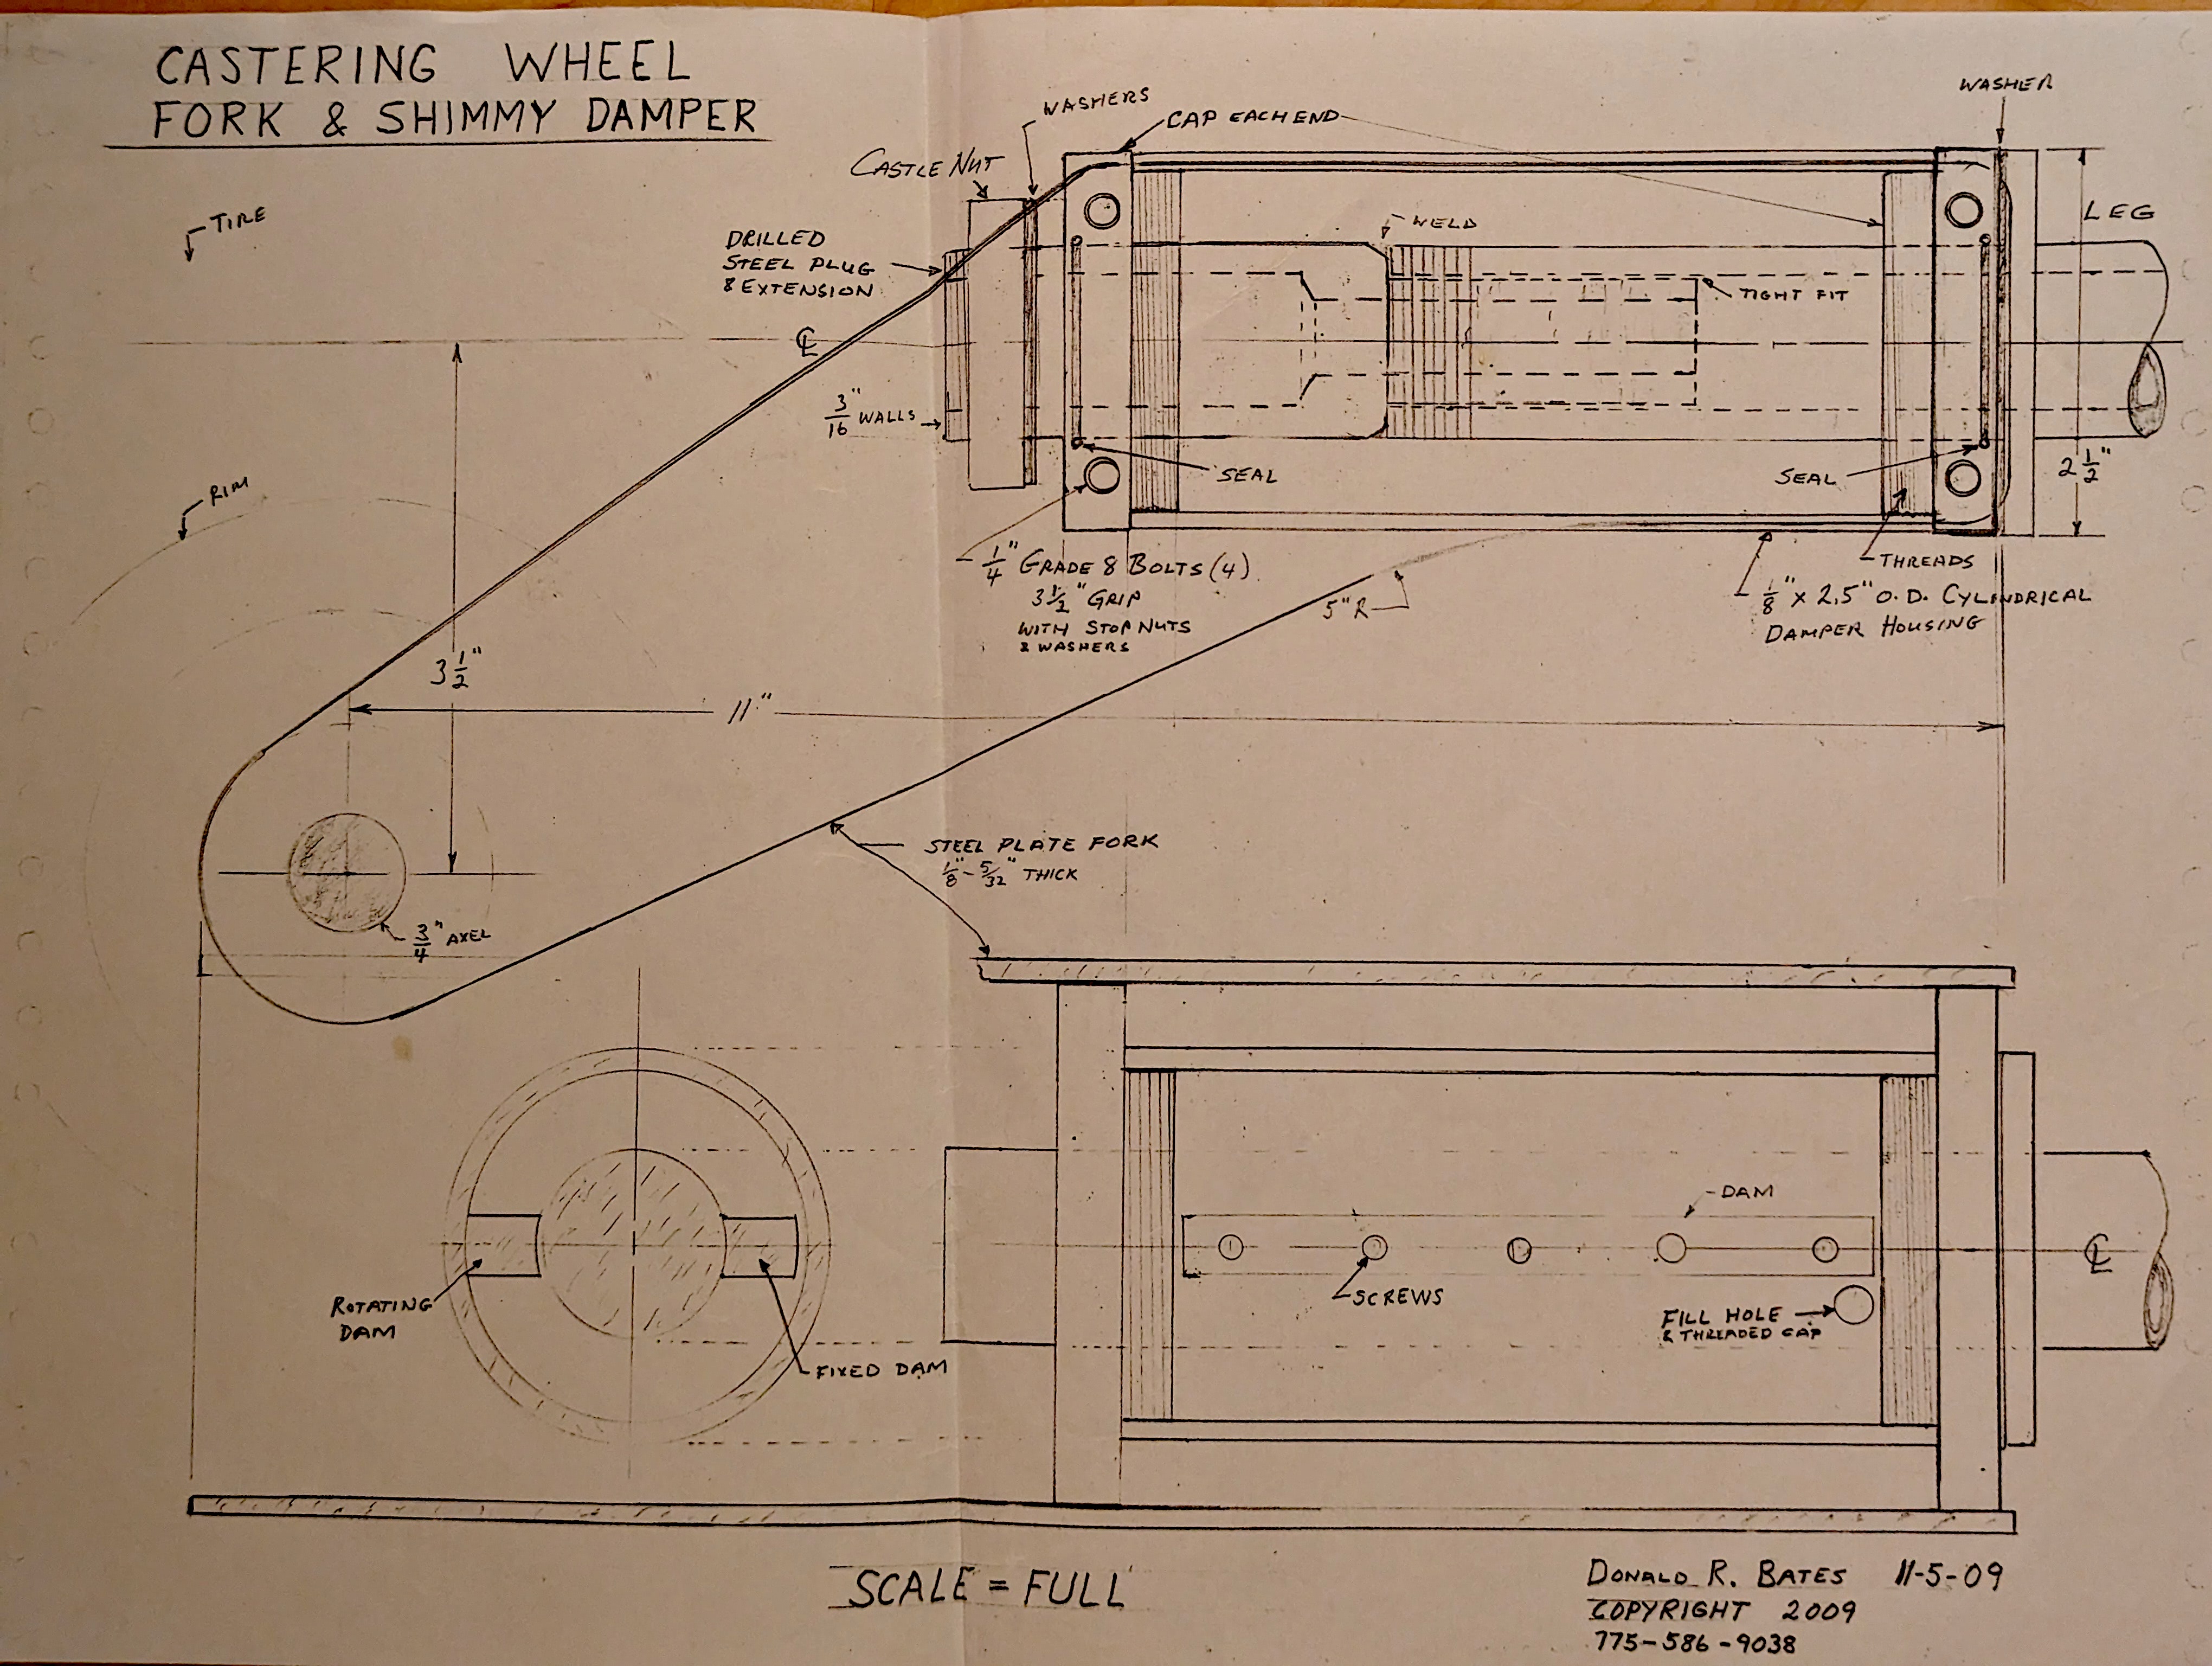 CASTERING WHEEL
FORK & SHIMMY DAMPER
WASHERS
CAP EACH END
WASHER
CASTLE NUT
TIRE
LEG
DRILLED
STEEL PLUG
& EXTENSION
WELD
TIGHT FIT
℄
3/16" WALLS
SEAL
SEAL
2 1/2"
RIM
1/4" GRADE 8 BOLTS (4)
3 1/2" GRIP
WITH STOP NUTS
& WASHERS
5" R
THREADS
1/8 x 2.5" O.D. CYLINDRICAL
DAMPER HOUSING
3 1/2"
11"
STEEL PLATE FORK
1/8" - 5/32" THICK
3/4" AXEL
DAM
SCREWS
℄
ROTATING
DAM
FILL HOLE
& THREADED CAP
FIXED DAM
SCALE = FULL
DONALD R. BATES 11-5-09
COPYRIGHT 2009
775-586-9038